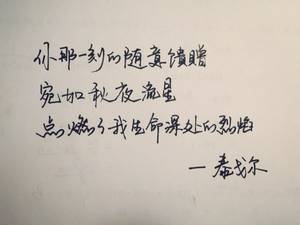 你那一刻的随意馈赠
宛如秋夜流星
点燃了我生命深处的烈焰
—泰戈尔